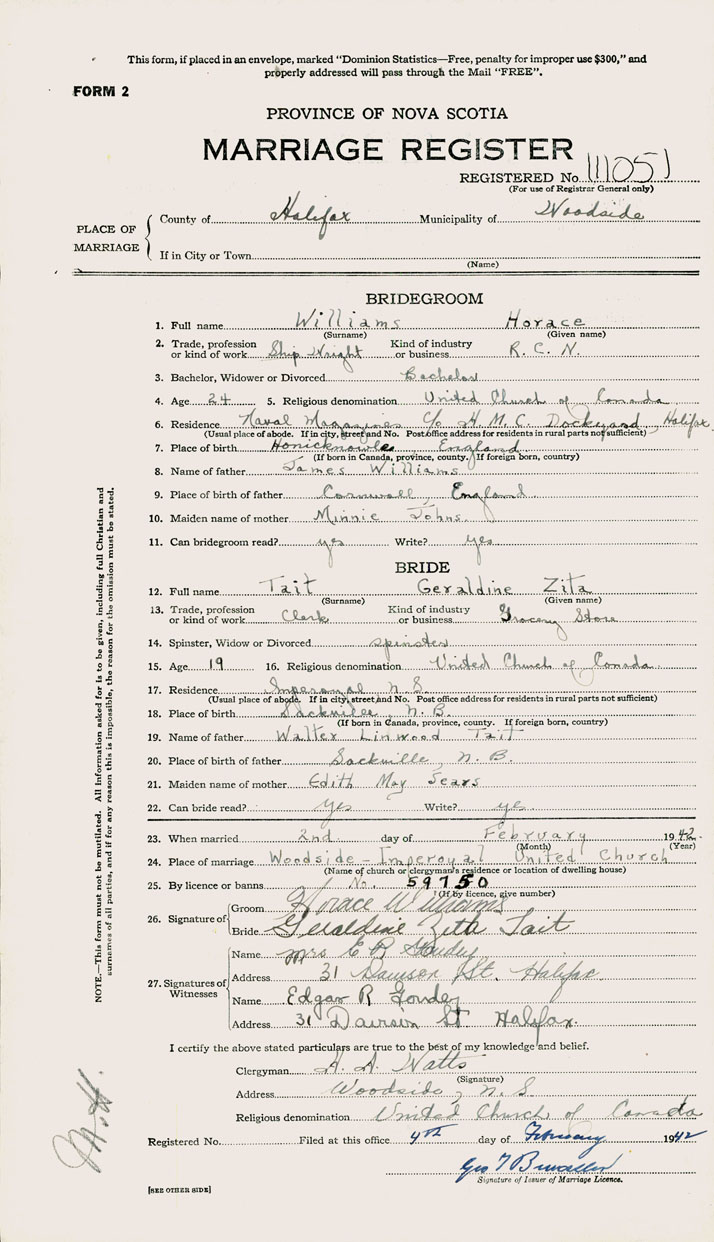 This form, if placed in an envelope, marked "Dominion Statistics—Free, penalty for improper use $300," and
properly addressed will pass through the Mail "FREE".
FORM 2
PROVINCE OF NOVA SCOTIA
MARRIAGE REGISTER
REGISTERED No. 11051
(For use of Registrar General only)
PLACE OF MARRIAGE
County of Halifax Municipality of Woodside
If in City or Town
(Name)
BRIDEGROOM
1. Full name Williams Horace
(Surname) (Given name)
2. Trade, profession or kind of work Ship Wright Kind of industry or business R. C. N.
3. Bachelor, Widower or Divorced Bachelor
4. Age 24 5. Religious denomination United Church of Canada
6. Residence Naval Magazines C/o H. M. C. Dockyard, Halifax
(Usual place of abode. If in city, street and No. Post office address for residents in rural parts not sufficient)
7. Place of birth Honicknowle England
(If born in Canada, province, county. If foreign born, country)
8. Name of father James Williams
9. Place of birth of father Cornwall, England
10. Maiden name of mother Minnie Johns
11. Can bridegroom read? yes Write? yes
BRIDE
12. Full name Tait Geraldine Zita
(Surname) (Given name)
13. Trade, profession or kind of work Clerk Kind of industry or business Grocery Store
14. Spinster, Widow or Divorced spinster
15. Age 19 16. Religious denomination United Church of Canada
17. Residence Imperoyal N. S.
(Usual place of abode. If in city, street and No. Post office address for residents in rural parts not sufficient)
18. Place of birth Sackville, N. B.
(If born in Canada, province, county. If foreign born, country)
19. Name of father Walter Linwood Tait
20. Place of birth of father Sackville, N. B.
21. Maiden name of mother Edith May Sears
22. Can bride read? yes Write? yes.
23. When married 2nd day of February 1942
(Month) (Year)
24. Place of marriage Woodside - Imperoyal United Church
(Name of church or clergyman's residence or location of dwelling house)
25. By licence or banns No. 59750
(If by licence, give number)
26. Signature of
Groom Horace Williams
Bride Geraldine Zita Tait
27. Signatures of Witnesses
Name Mrs E R
Address 31 Dawson St. Halifax
Name Edgar R
Address 31 Dawson St Halifax.
I certify the above stated particulars are true to the best of my knowledge and belief.
Clergyman A. A. Watts
(Signature)
Address Woodside, N. S
Religious denomination United Church of Canada
Registered No. Filed at this office 4th day of February 1942
Geo T
Signature of Issuer of Marriage Licence.
[SEE OTHER SIDE]
NOTE.—This form must not be mutilated. All information asked for is to be given, including full Christian and
surnames of all parties, and if for any reason this is impossible, the reason for the omission must be stated.